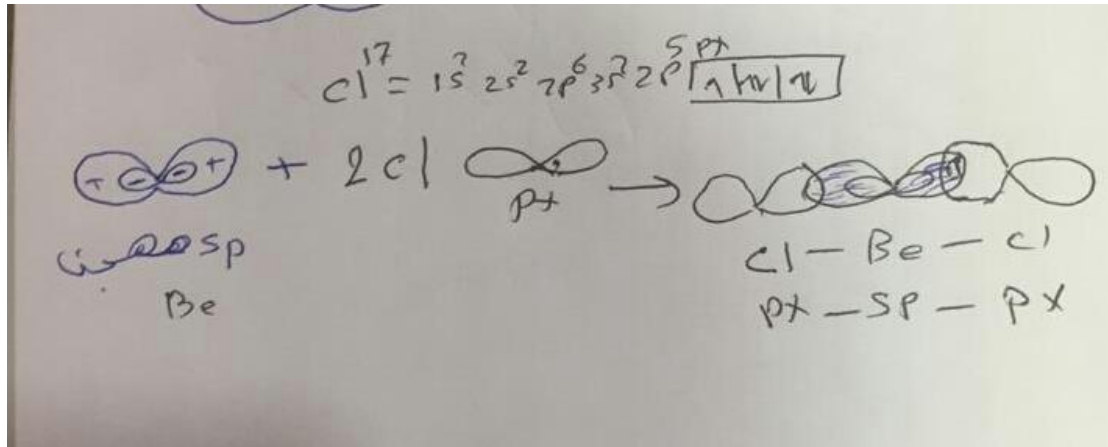 Cl¹⁷ = 1s² 2s² 2p⁶ 3s² 2p⁵ px
+ - - + + 2Cl px →
sp مهجن
Be
Cl — Be — Cl
px — sp — px